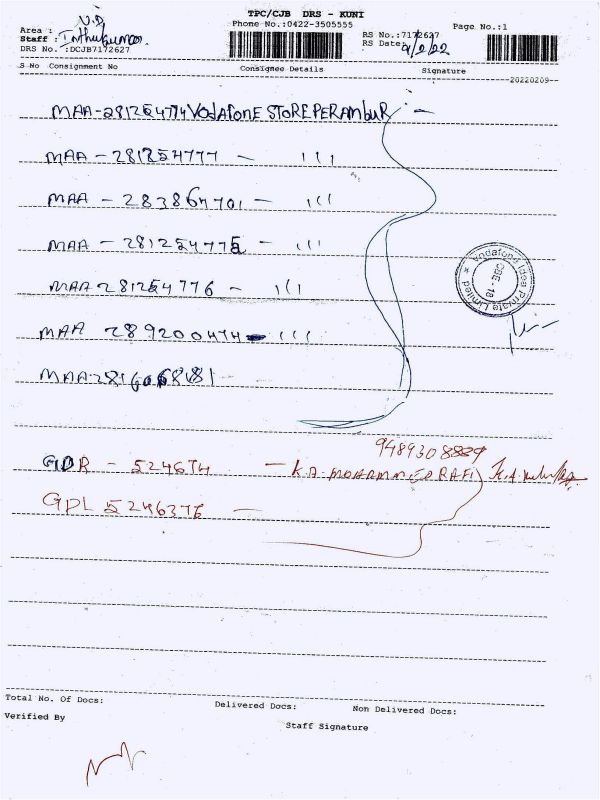 TPC/CJB DRS - KUNI
Phone No.:0422-3505555
Page No.:1
Area :
Staff : Inthukumar
DRS No. :DCJB7172627
RS No.:7172627
RS Date: 9/2/22
S No Consignment No Consignee Details Signature
20220209
MAA-281254774 VODAFONE STORE PERAMBUR
MAA - 281254777 - ιιι
MAA - 283864701 - ιιι
MAA - 281254775 - ιιι
MAA 281254776 - ιιι
MAA 289200474 - ιιι
MAA-2816068181
Vodafone Idea Private Limited *
CBE - 18
GDR - 524674 - K.A. MOHAMMED RAFI
GDL 5246376 -
Total No. Of Docs: Delivered Docs: Non Delivered Docs:
Verified By
Staff Signature